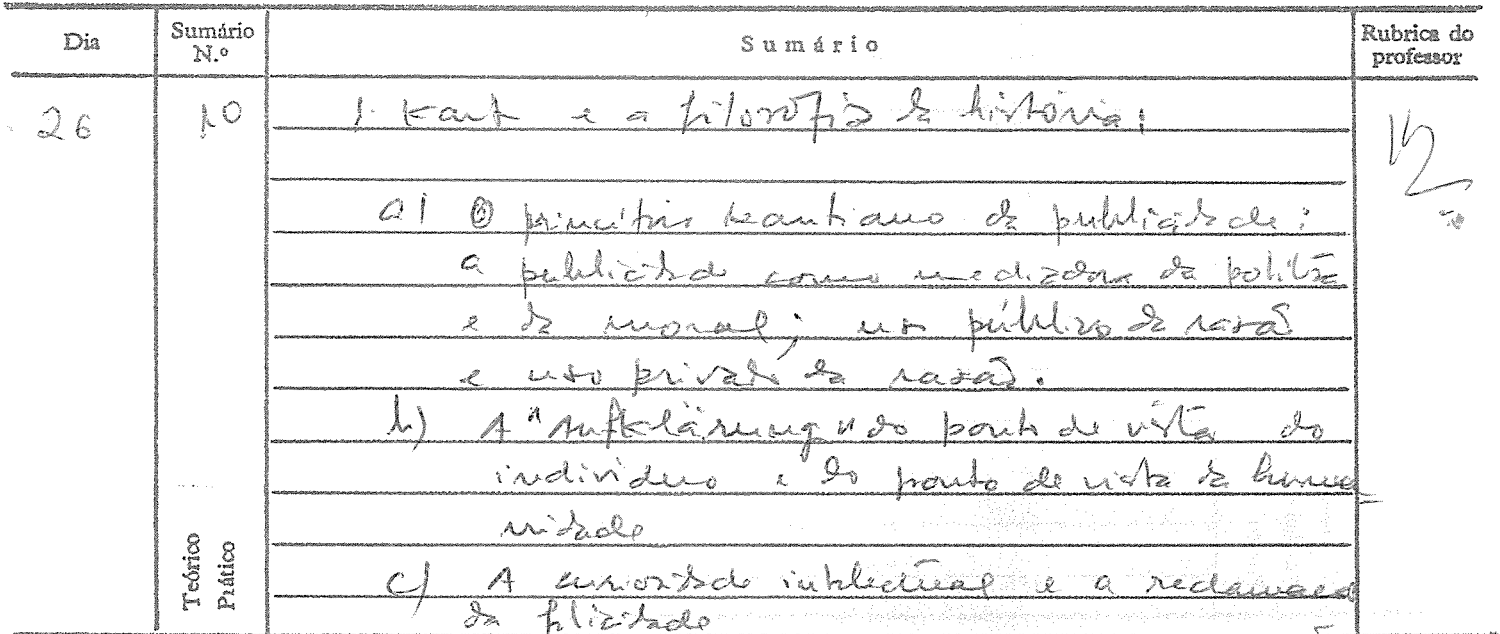 Dia Sumário N.º Sumário Rubrica do professor
26 1. Kant e a filosofia da história:
a) O princípio kantiano da publicidade:
a publicidade como mediadora da política
e da moral; uso público da razão
e uso privado da razão.
b) A "Aufklärung" do ponto de vista do
indivíduo e do ponto de vista da huma
nidade
c) A curiosidade intelectual e a reclamação
da felicidade
Teórico
Prático